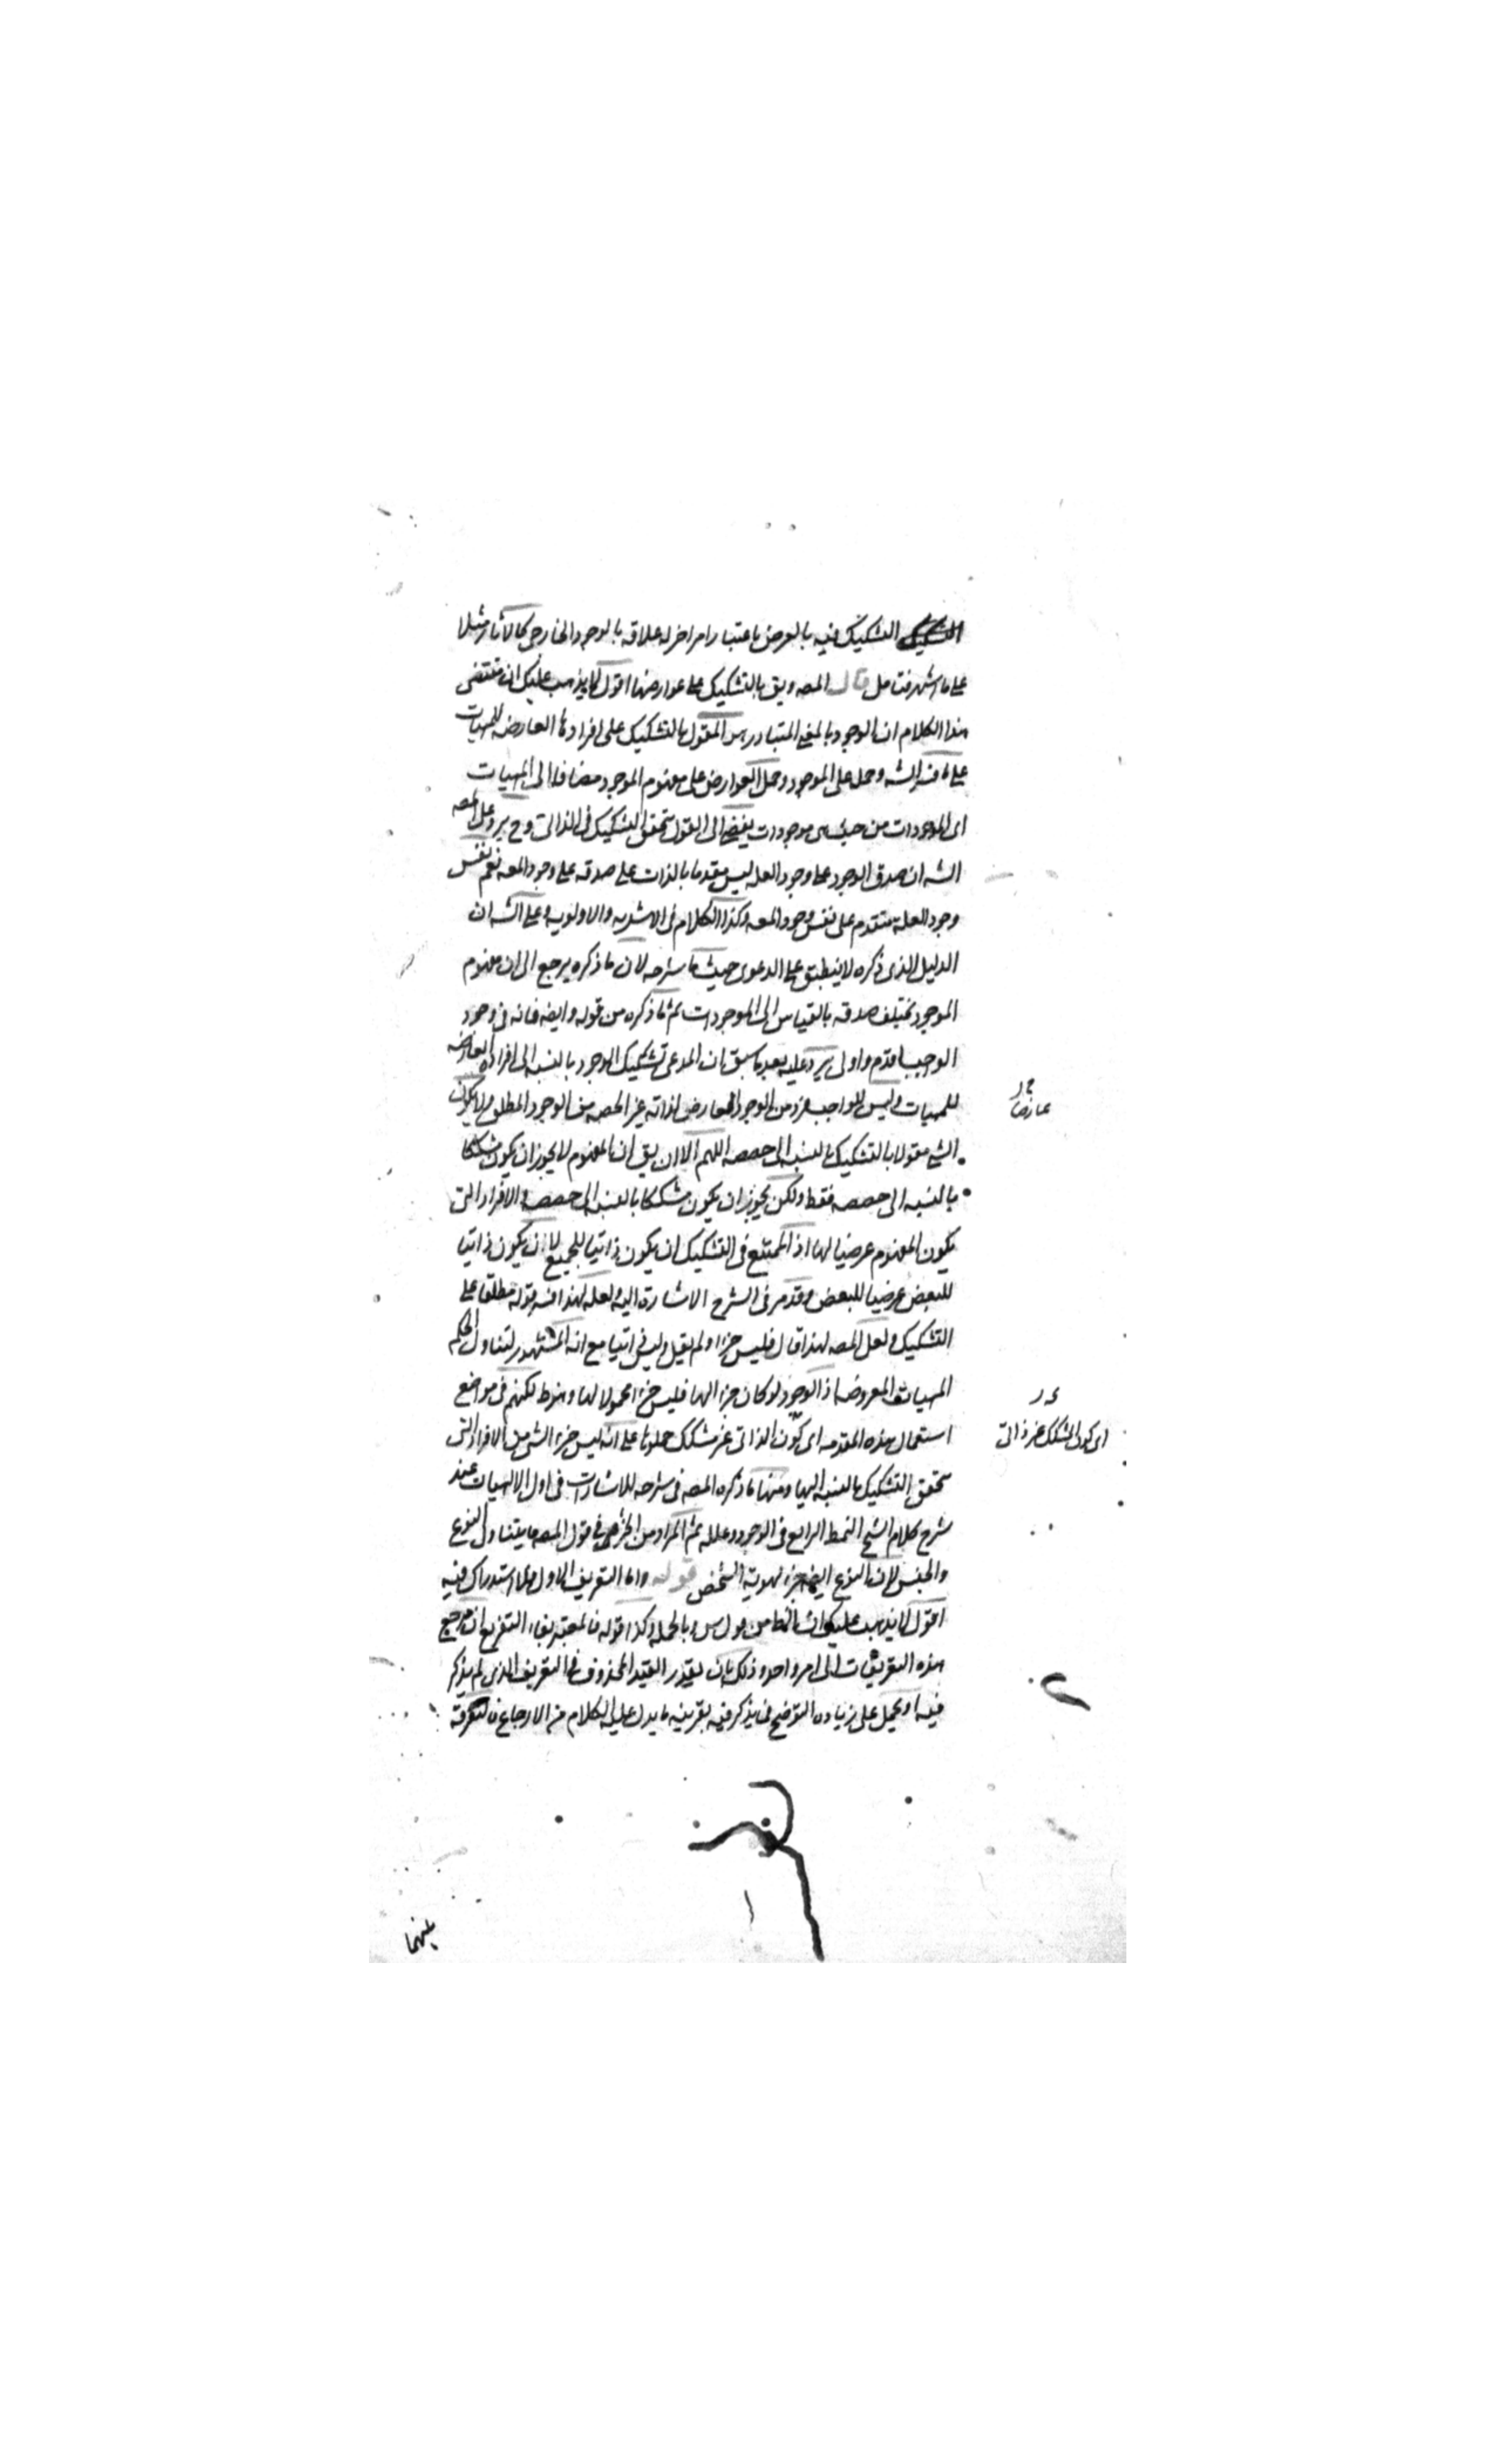 التشكيك التشكيك فيه بالعرض باعتبار امر اخر له علاقه بالوجود الخارجى كالاثار مثلا
على ما اشهر فتامل قال المصه ويق بالتشكيك على عوارضها اقول لا يذهب عليك ان مقتضى
هذا الكلام ان الوجود بالمعنى المتبادر هو المقول بالتشكيك على افراد ها العارضه للمهيات
على ما فسر الشه وحمل على الموجود وحمل العوارض على مفهوم الموجود مضافا الى المهيات
اى الموجودات من حيث هى موجودات يفضى الى القول بتحقق التشكيك فى الذاتى وح يرد على المصه
الشه ان صدق الوجود على وجود العله ليس مقدما بالذات على صدقه على وجود المعه نعم نفس
وجود العلة متقدم على نفس وجود المعه وكذا الكلام فى الاشديه والاولويه وعلى الشه ان
الدليل الذى ذكره لا ينطبق على الدعوى حيث ما شرحه لان ما ذكره يرجع الى ان مفهوم
الموجود يختلف صدقه بالقياس الى الموجودات ثم ما ذكره من قوله وايضه فانه فى وجود
الوجب اقدم واولى يرد عليه بعد ما سبق ان المدعى تشكيك الوجود بالنسبه الى افراده العارضه
للمهيات وليس للواجب فرد من الوجود العارض لذاته غير الحصه من الوجود المطلق ولا يكون
الشى مقولا بالتشكيك بالنسبه الى حصصه اللهم الا ان يق ان المفهوم لا يجوز ان يكون مشككا
بالنسبه الى حصصه فقط ولكن يجوز ان يكون مشككا بالنسبه الى حصصه والافراد التى
يكون المفهوم عرضيا لها اذ الممتنع فى التشكيك ان يكون ذاتيا للجميع لا ان يكون ذاتيا
للبعض عرضيا للبعض وقد مر فى الشرح الاشارة اليه ولعله لهذا فسر قوله مطلقا على
التشكيك ولعل المصه لهذا قال فليس جزءا ولم يقل وليس ذاتيا مع انه المشهور لتناول الحكم
المهيات المعروضه اذ الوجود لو كان جزءا لها فليس جزءا محمولا لها وهو ظ لكنهم فى مواضع
استعمال هذه المقدمه اى كون الذاتى غير مشكك حملوها على انه ليس جزءا لشى من الافراد التى
يتحقق التشكيك بالنسبه اليها ومنها ما ذكره المصه فى شرحه للاشارات فى اول الالهيات عند
شرح كلام الشيخ النمط الرابع فى الوجود وعلله ثم المراد من الجزء فى قول المصه ما يتناول النوع
والجنس لان النوع ايضه جزء لهوية الشخص قوله واما التعريف الاول فلا استدراك فيه
اقول لا يذهب عليك ان وبالجمله وكذا قوله فالمعتبر بفاء التفريع ان مرجع
هذه التعريفات الى امر واحد وذلك بان يقدر القيد المحذوف فى التعريف الذى لم يذكر
فيه او يحمل على زيادة التوضيح فيما يذكر فيه بقرينه ما يدل عليه الكلام من الارجاع فالتفرقة
عارضا
اى كون المشكك غير ذاتى
بينهما